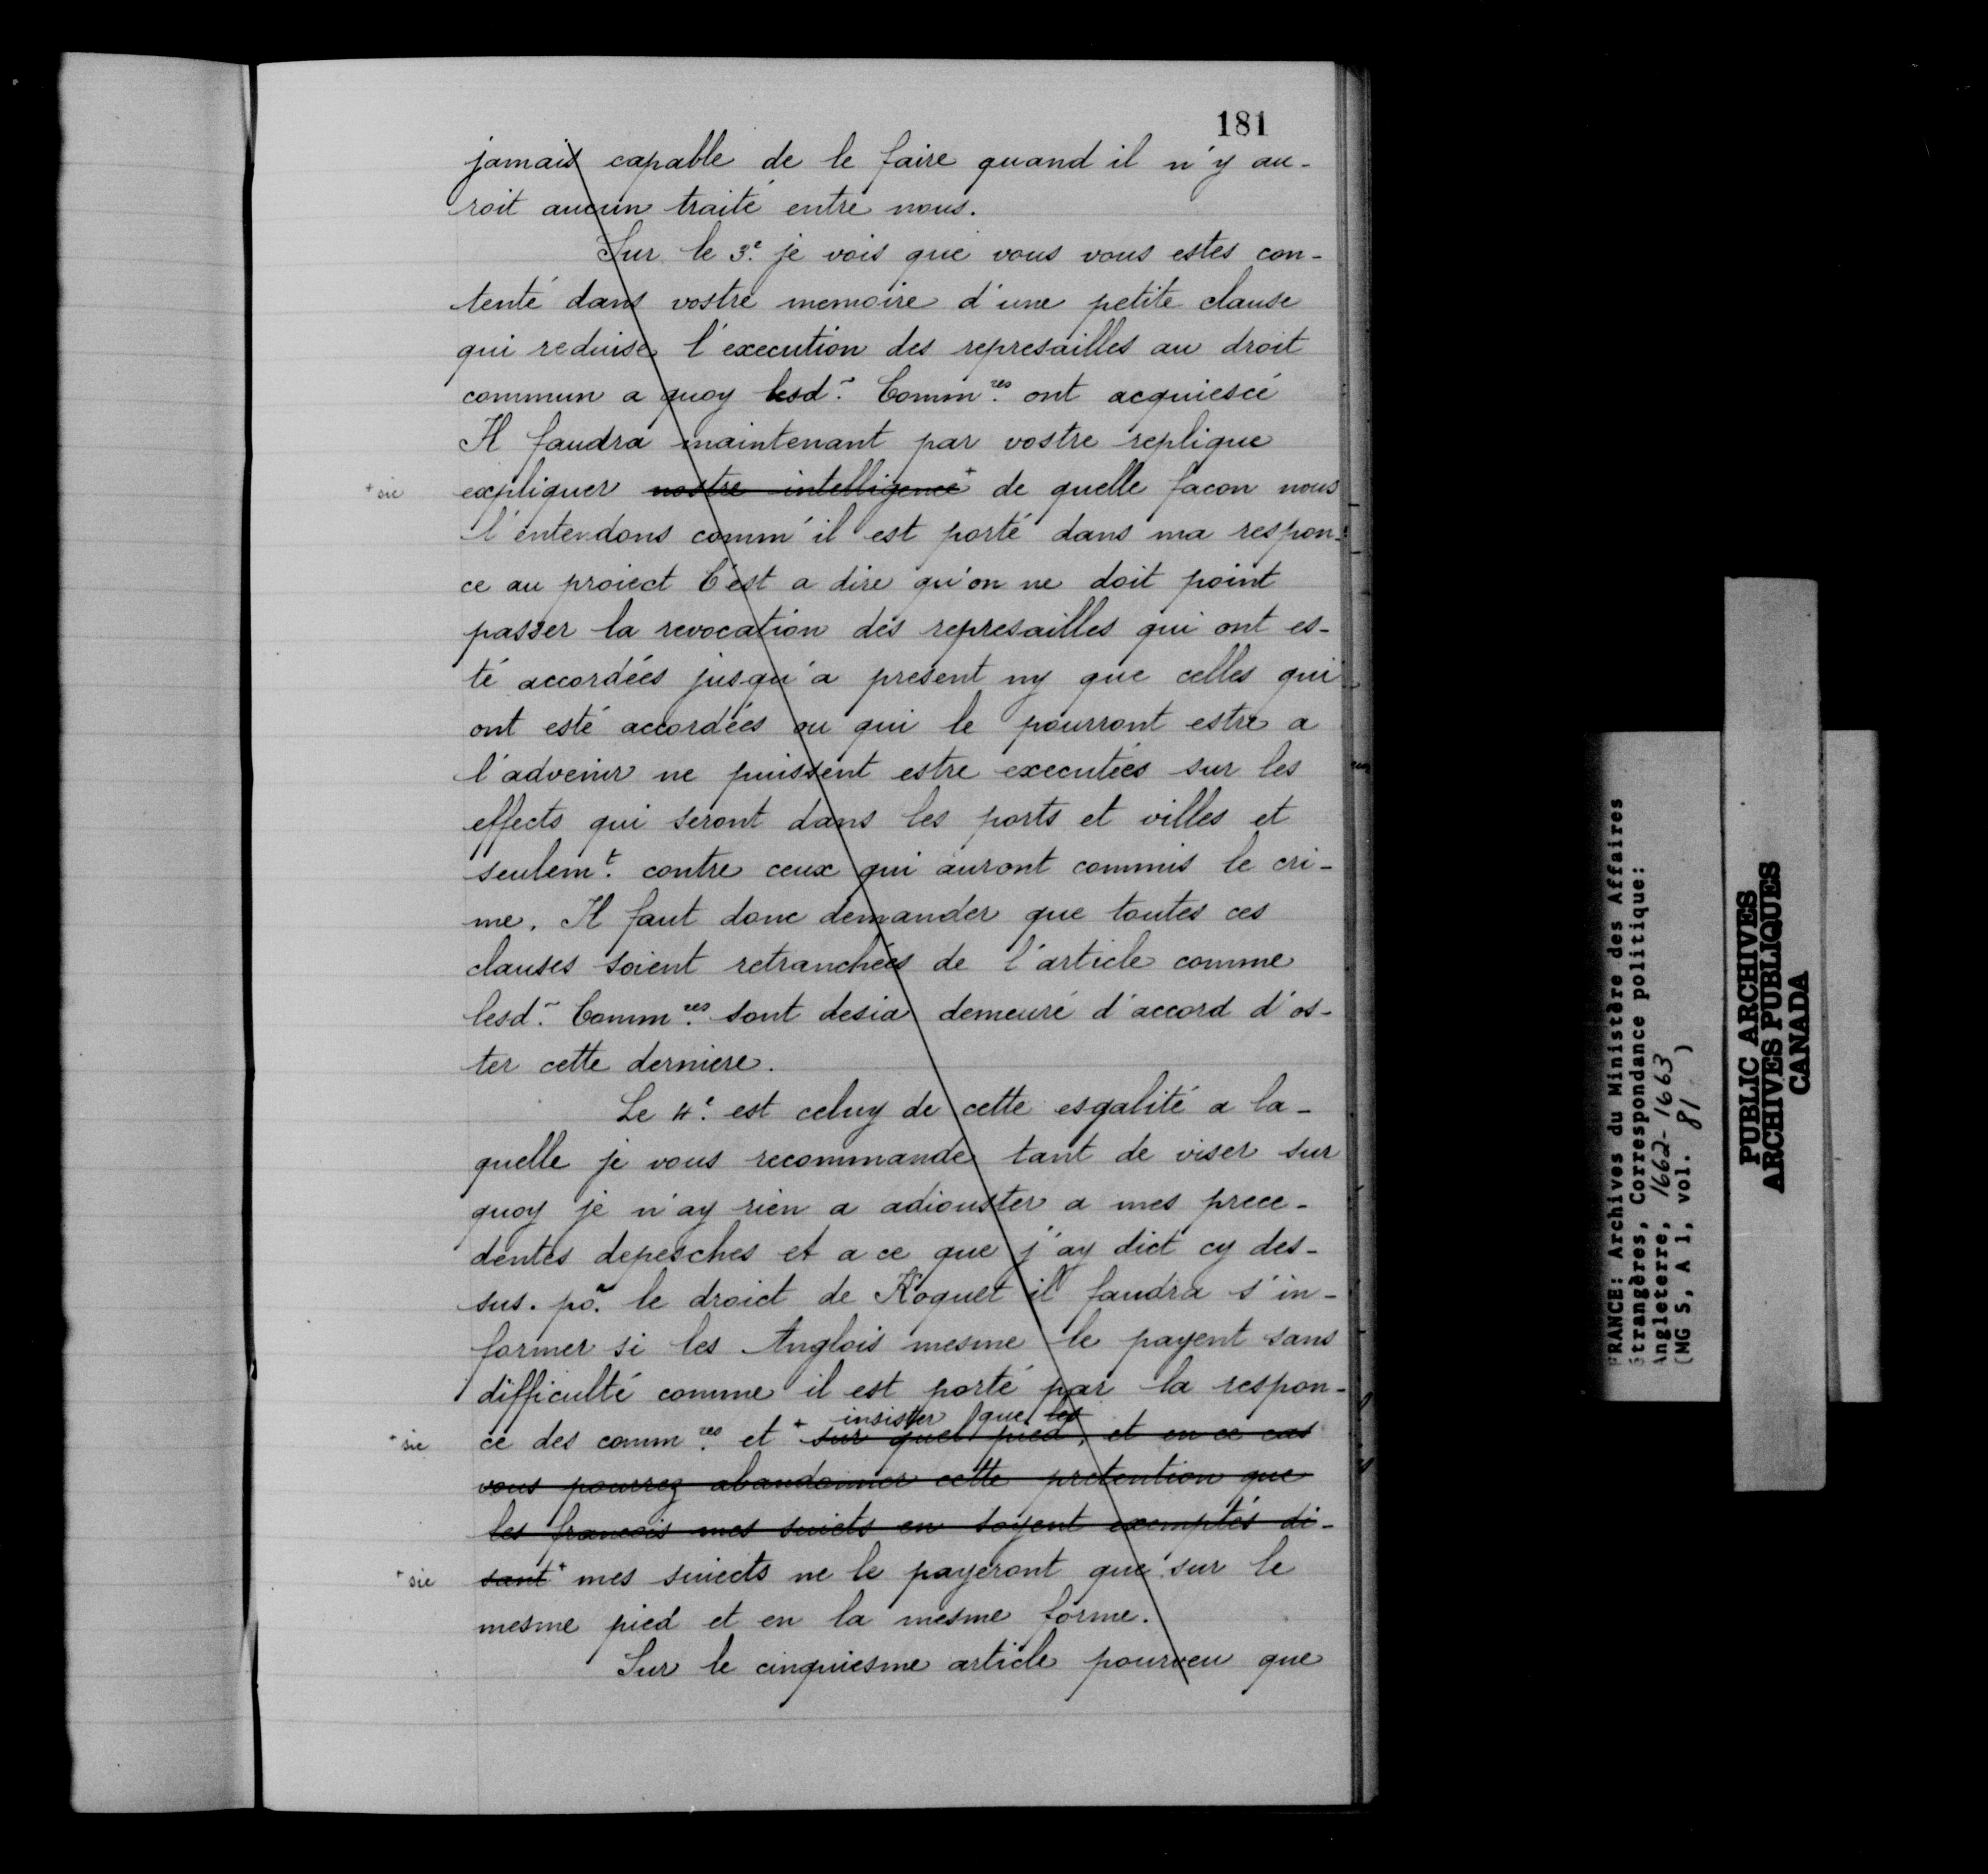 181
jamais capable de le faire quand il n'y au-
roit aucun traité entre nous.
Sur le 3e. je vois que vous vous estes con-
tenté dans vostre memoire d'une petite clause
qui reduise l'execution des represailles au droit
commun a quoy lesd~. Commres. ont acquiescé
Il faudra maintenant par vostre replique
+sic expliquer nostre intelligence+ de quelle facon nous
l'entendons comm'il est porté dans ma respon-
ce au proiect C'est a dire qu'on ne doit point
passer la revocation des represailles qui ont es-
té accordées jusqu'a present ny que celles qui
ont esté accordées ou qui le pourront estre a
l'advenir ne puissent estre executées sur les
effects qui seront dans les ports et villes et
seulemt. contre ceux qui auront commis le cri-
me. Il faut donc demander que toutes ces
clauses soient retranchées de l'article comme
lesd~. Commres. sont desia demeuré d'accord d'os-
ter cette derniere.
Le 4e. est celuy de cette esgalité a la-
quelle je vous recommande tant de viser sur
quoy je n'ay rien a adiouster a mes prece-
dentes depesches et a ce que j'ay dict cy des-
sus. po~. le droict de Koquet il faudra s'in-
former si les Anglois mesme le payent sans
difficulté comme il est porté par la respon-
insister que les
+sic ce des commres. et + sur quel pied, et en ce cas
vous pourrez abandonner cette pretention que
les francois mes suiets en soyent exemptés di-
+sic sant+ mes suiects ne le payeront que sur le
mesme pied et en la mesme forme.
Sur le cinquiesme article pourveu que
FRANCE: Archives du Ministère des Affaires
Étrangères, Correspondance politique:
Angleterre, 1662-1663
(MG 5, A 1, vol. 81 )
PUBLIC ARCHIVES
ARCHIVES PUBLIQUES
CANADA